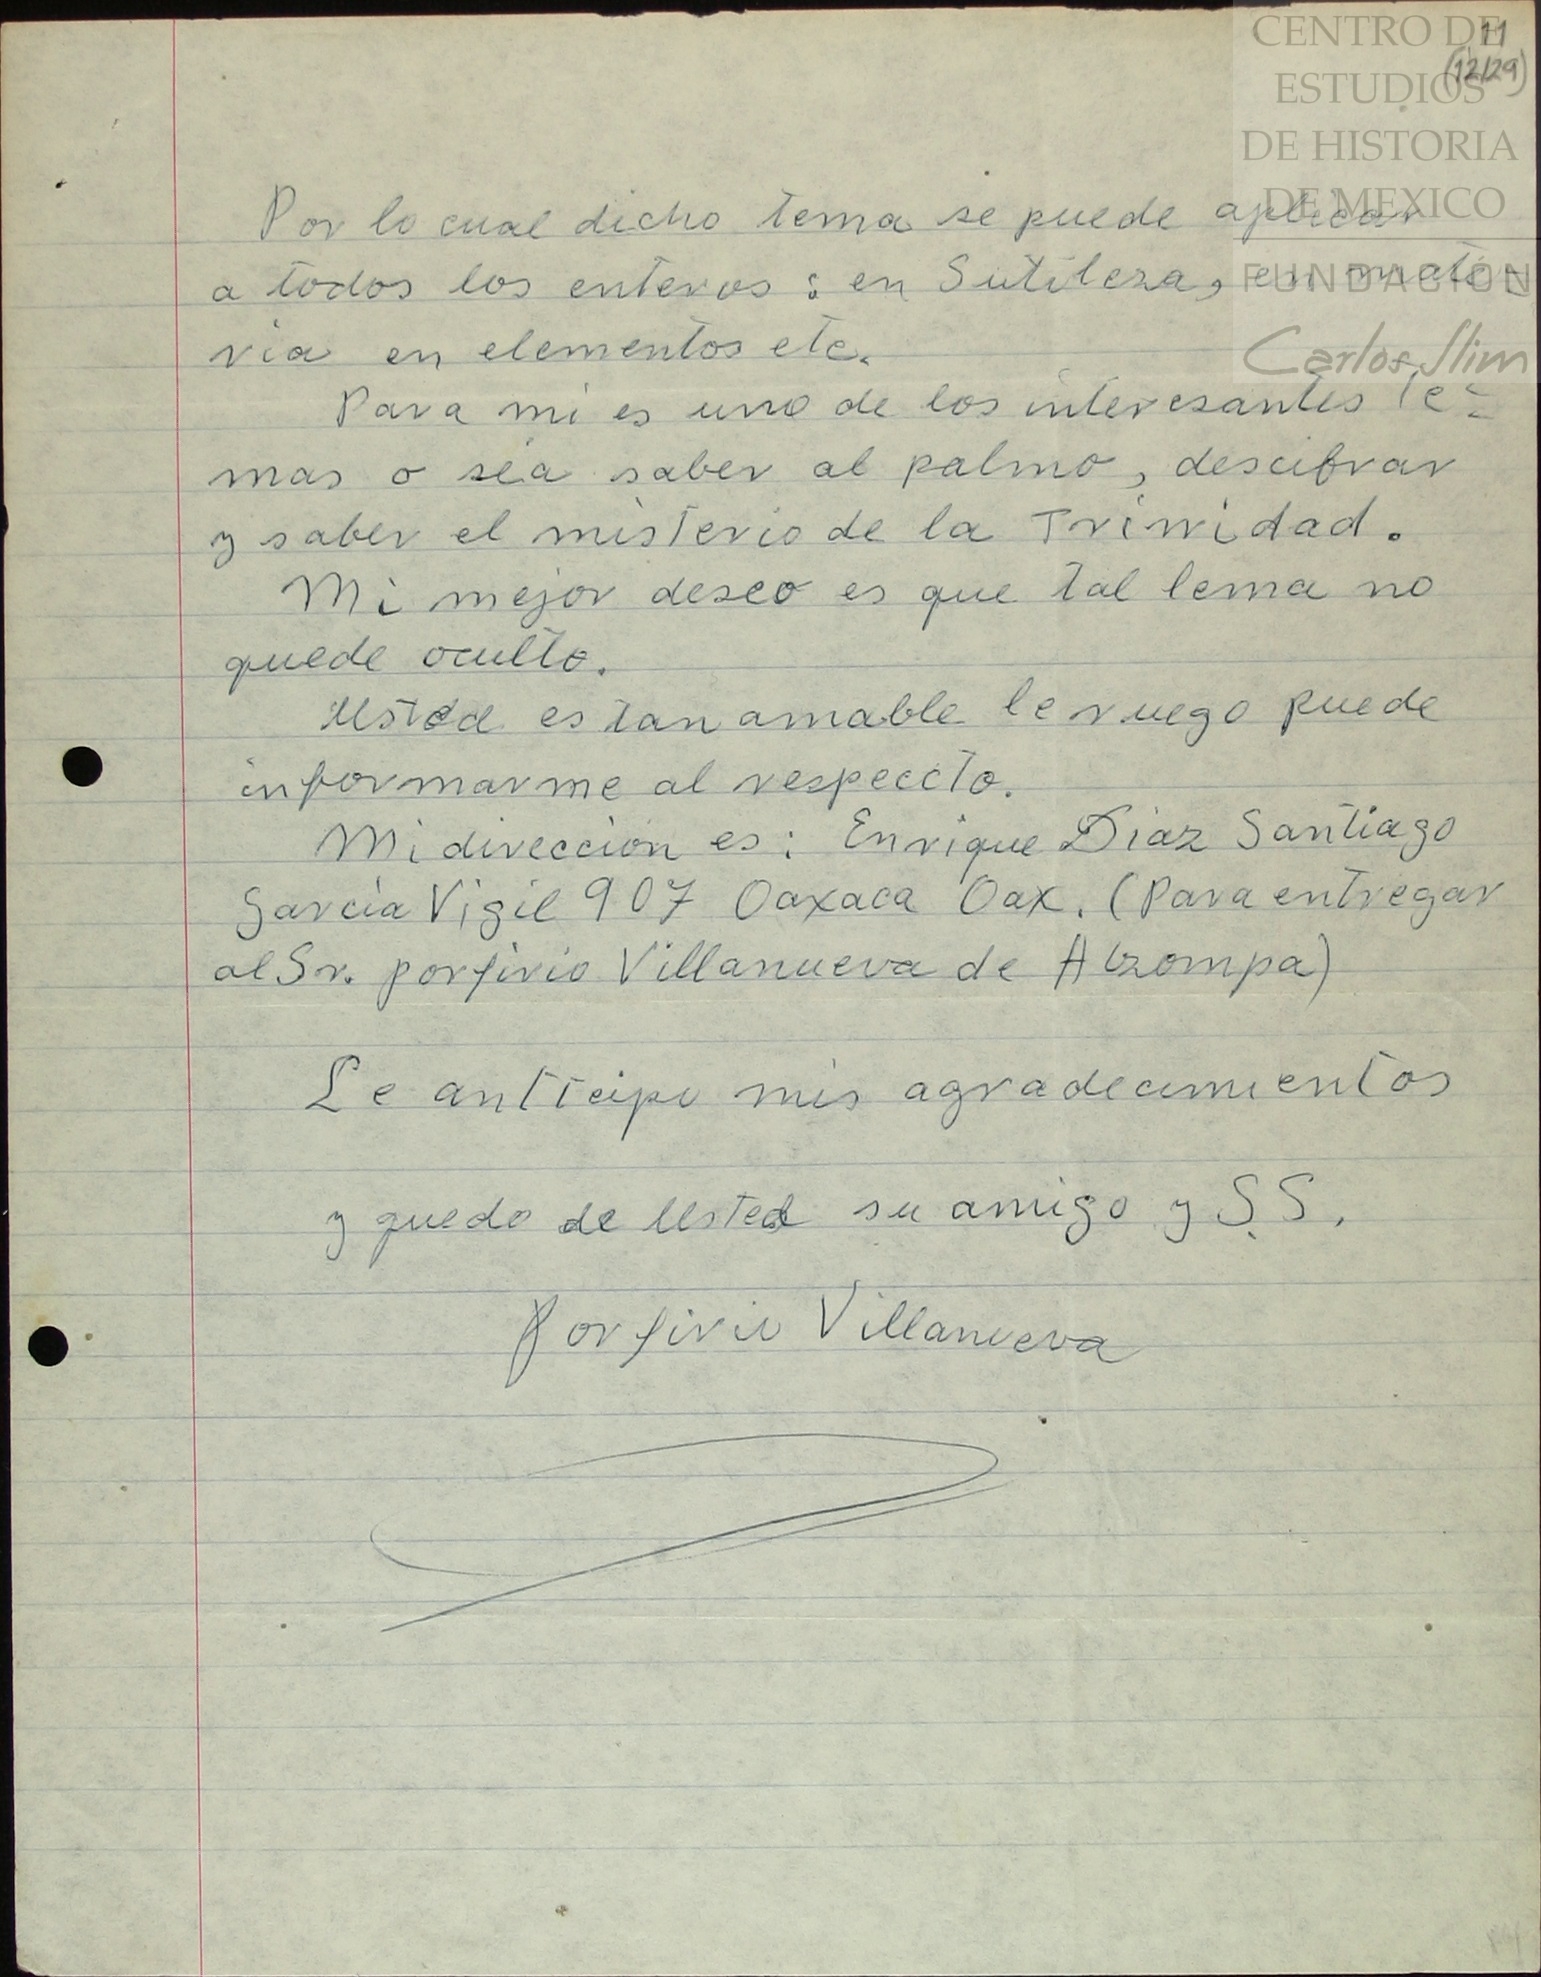 CENTRO DE
ESTUDIOS
DE HISTORIA
DE MEXICO
FUNDACIÓN
Carlos Slim
11
(12/29)
Por lo cual dicho tema se puede aplicar
a todos los enteros : en Sutileza, en mate-
ria en elementos etc.
Para mi es uno de los interesantes te=
mas o séa saber al palmo, descifrar
y saber el misterio de la Trinidad.
Mi mejor deseo es que tal lema no
quede oculto.
Usted es tan amable le ruego puede
informarme al respeccto.
Mi dirección es: Enrique Diaz Santiago
García Vigil 907 Oaxaca Oax. (Para entregar
al Sr. porfirio Villanueva de Atzompa)
Le anticipo mis agradecimientos
y quedo de Usted su amigo y S.S.
Porfirio Villanueva